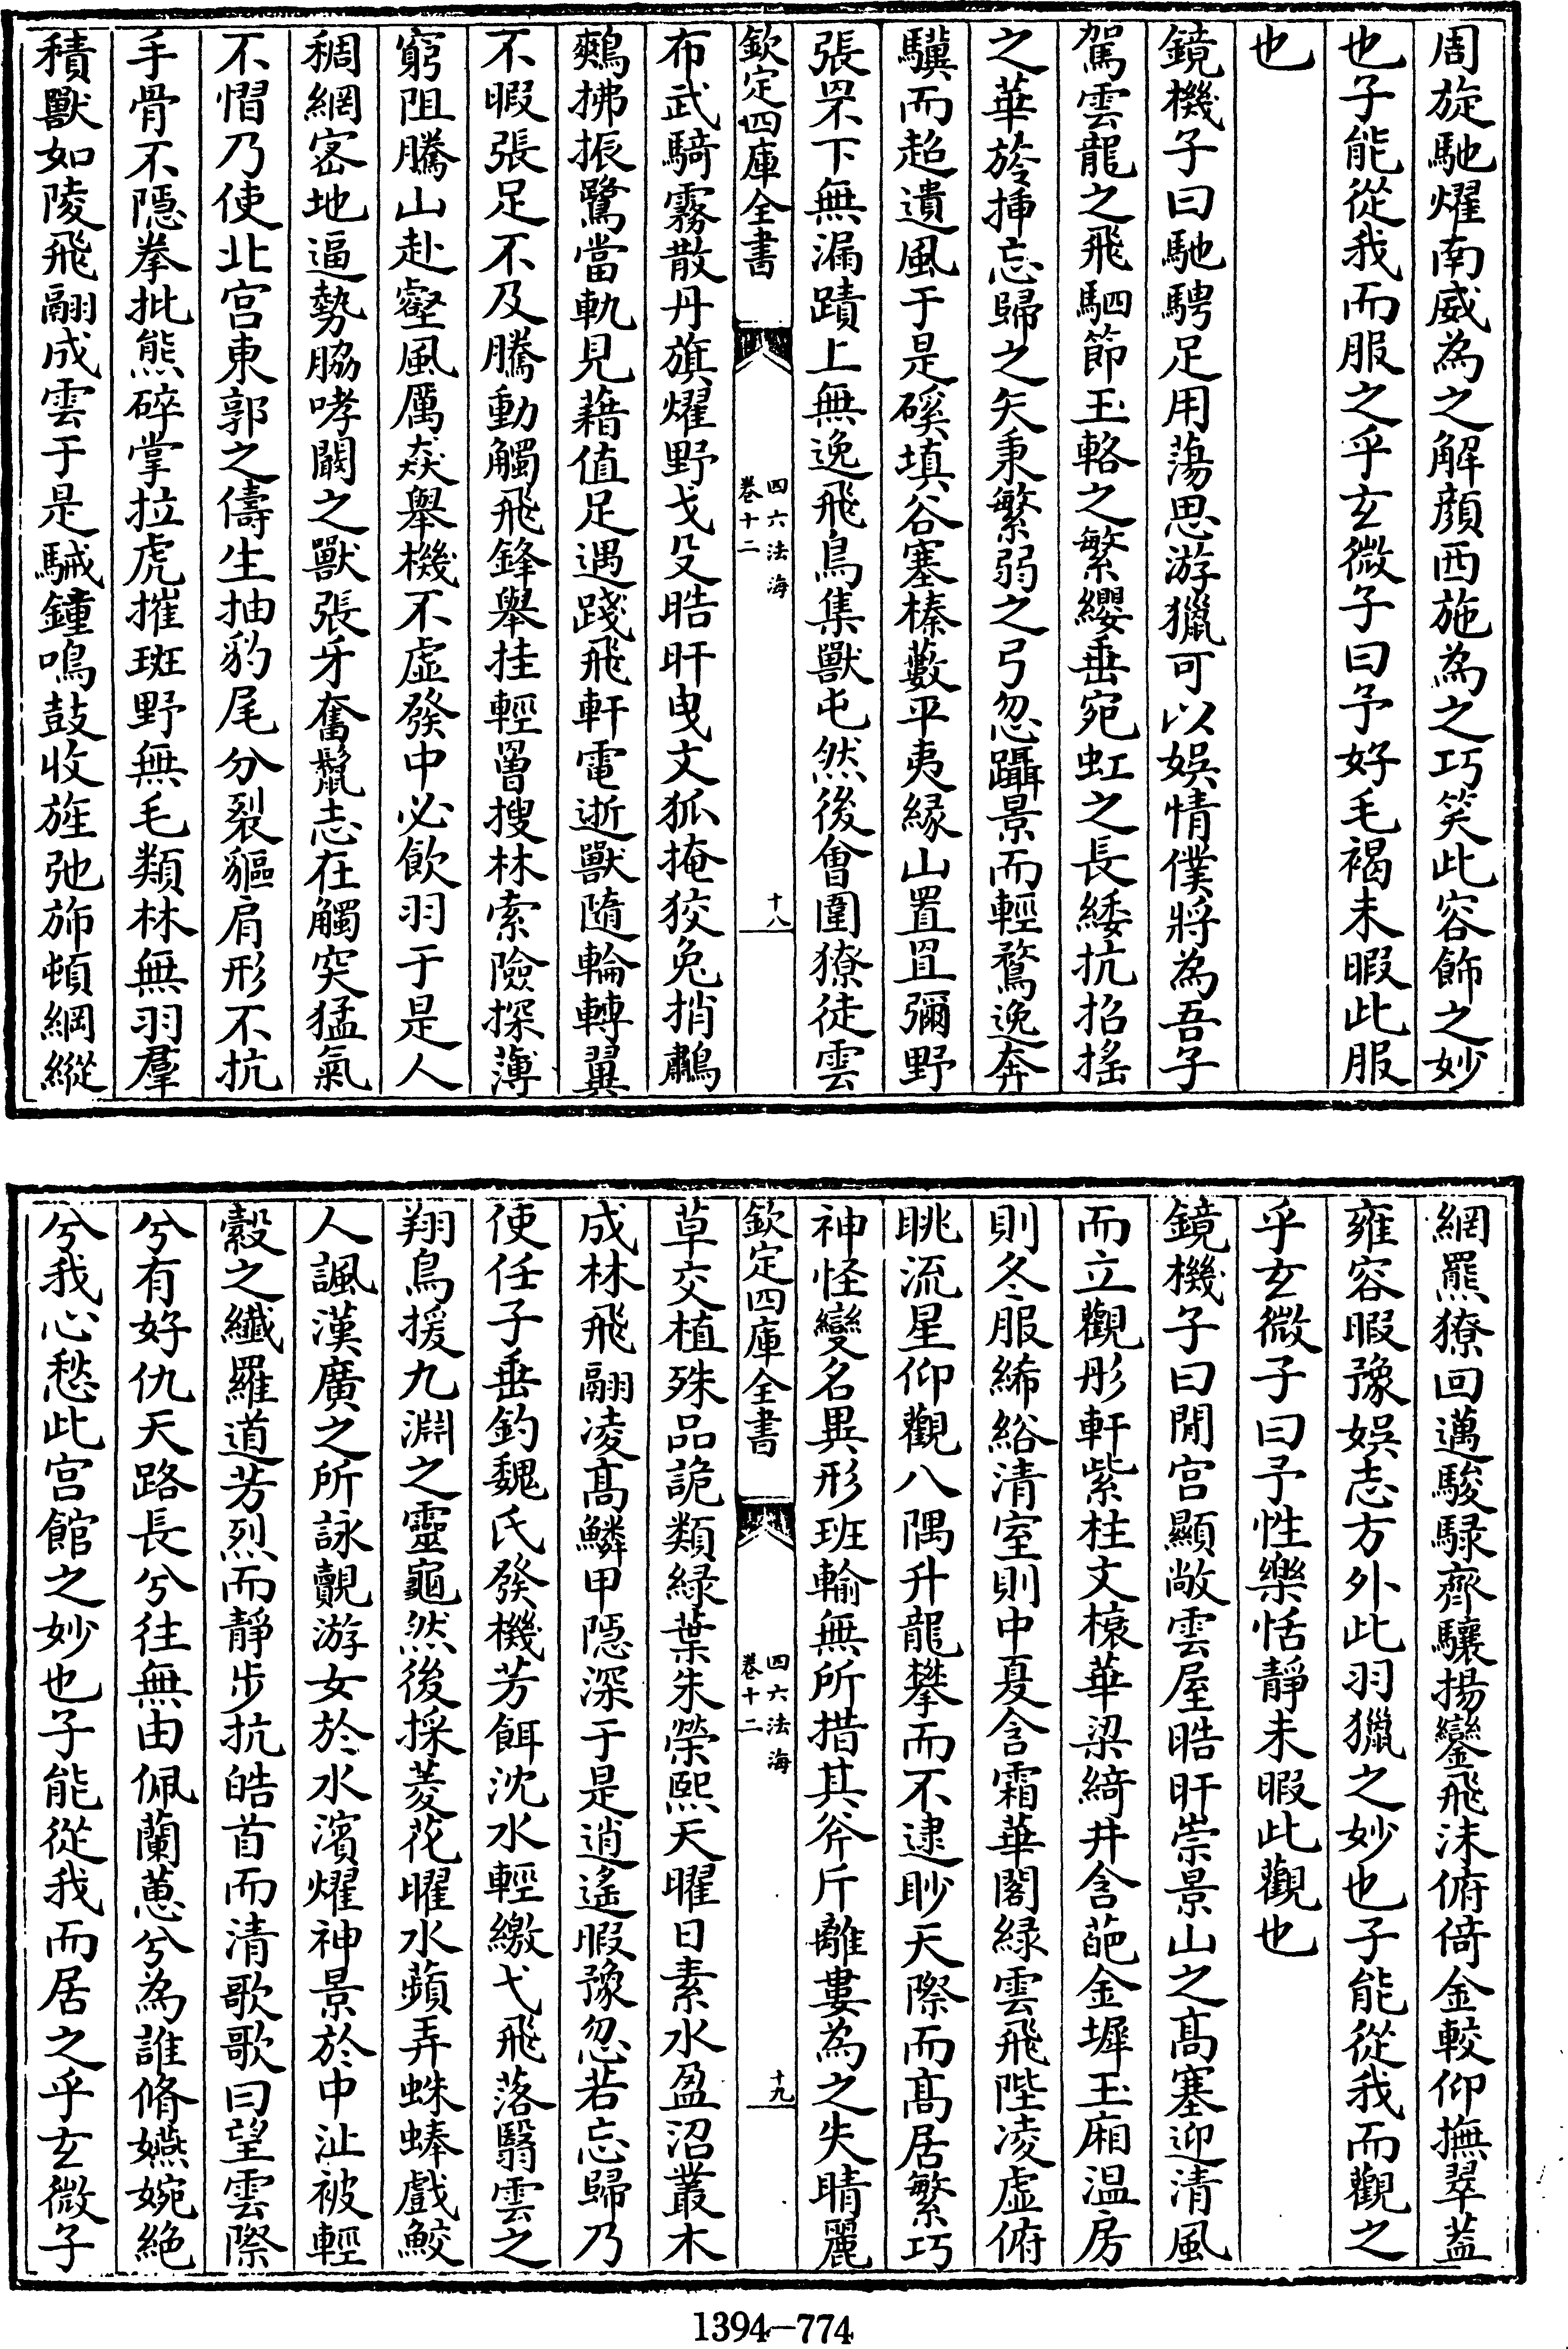 周旋馳燿南威為之解顔西施為之巧笑此容飾之妙
也子能從我而服之乎玄微子曰予好毛褐未暇此服
也
鏡機子曰馳騁足用蕩思游獵可以娯情僕將為吾子
駕雲龍之飛駟節玉輅之繁纓垂宛虹之長緌抗招搖
之華旍揷忘歸之矢秉繁弱之弓忽躡景而輕騖逸奔
驥而超遺風于是磎填谷塞榛藪平夷縁山置罝彌野
張罘下無漏蹟上無逸飛鳥集獸屯然後㑹圍獠徒雲
欽定四庫全書
四六法海
卷十二
十八
布武騎霧散丹旗燿野戈殳晧旰曳文狐掩狡兔捎鷫
鷞拂振鷺當軌見藉值足遇踐飛軒電逝獸隨輪轉翼
不暇張足不及騰動觸飛鋒舉挂輕罾搜林索險探薄
窮阻騰山赴壑風厲焱舉機不虛發中必飲羽于是人
稠網宻地逼勢脇哮闞之獸張牙奮鬛志在觸突猛氣
不慴乃使北宫東郭之儔生抽豹尾分裂貙肩形不抗
手骨不隱拳批熊碎掌拉虎摧斑野無毛類林無羽羣
積獸如陵飛翮成雲于是駴鐘鳴鼓收旌弛斾頓綱縱
網羆獠回邁駿騄齊驤揚鑾飛沫俯倚金較仰撫翠葢
雍容暇豫娯志方外此羽獵之妙也子能從我而觀之
乎玄微子曰予性樂恬靜未暇此觀也
鏡機子曰閒宫顯敞雲屋晧旰崇景山之髙塞迎清風
而立觀彤軒紫柱文榱華梁綺井含葩金墀玉廂温房
則冬服絺綌清室則中夏含霜華閣緑雲飛陛凌虛俯
眺流星仰觀八隅升龍攀而不逮眇天際而髙居繁巧
神怪變名異形班輸無所措其斧斤離婁為之失睛麗
欽定四庫全書
四六法海
卷十二
十九
草交植殊品詭類緑葉朱榮熙天曜日素水盈沼叢木
成林飛翮凌髙鱗甲隱深于是逍遙暇豫忽若忘歸乃
使任子垂釣魏氏發機芳餌沈水輕繳弋飛落翳雲之
翔鳥援九淵之靈龜然後採菱花曜水蘋弄蛛蜯戲鮫
人諷漢廣之所詠覿游女於水濱燿神景於中沚被輕
縠之纖羅道芳烈而靜步抗皓首而清歌歌曰望雲際
兮有好仇天路長兮往無由佩蘭蕙兮為誰脩嬿婉絶
兮我心愁此宫館之妙也子能從我而居之乎玄微子
1394-774